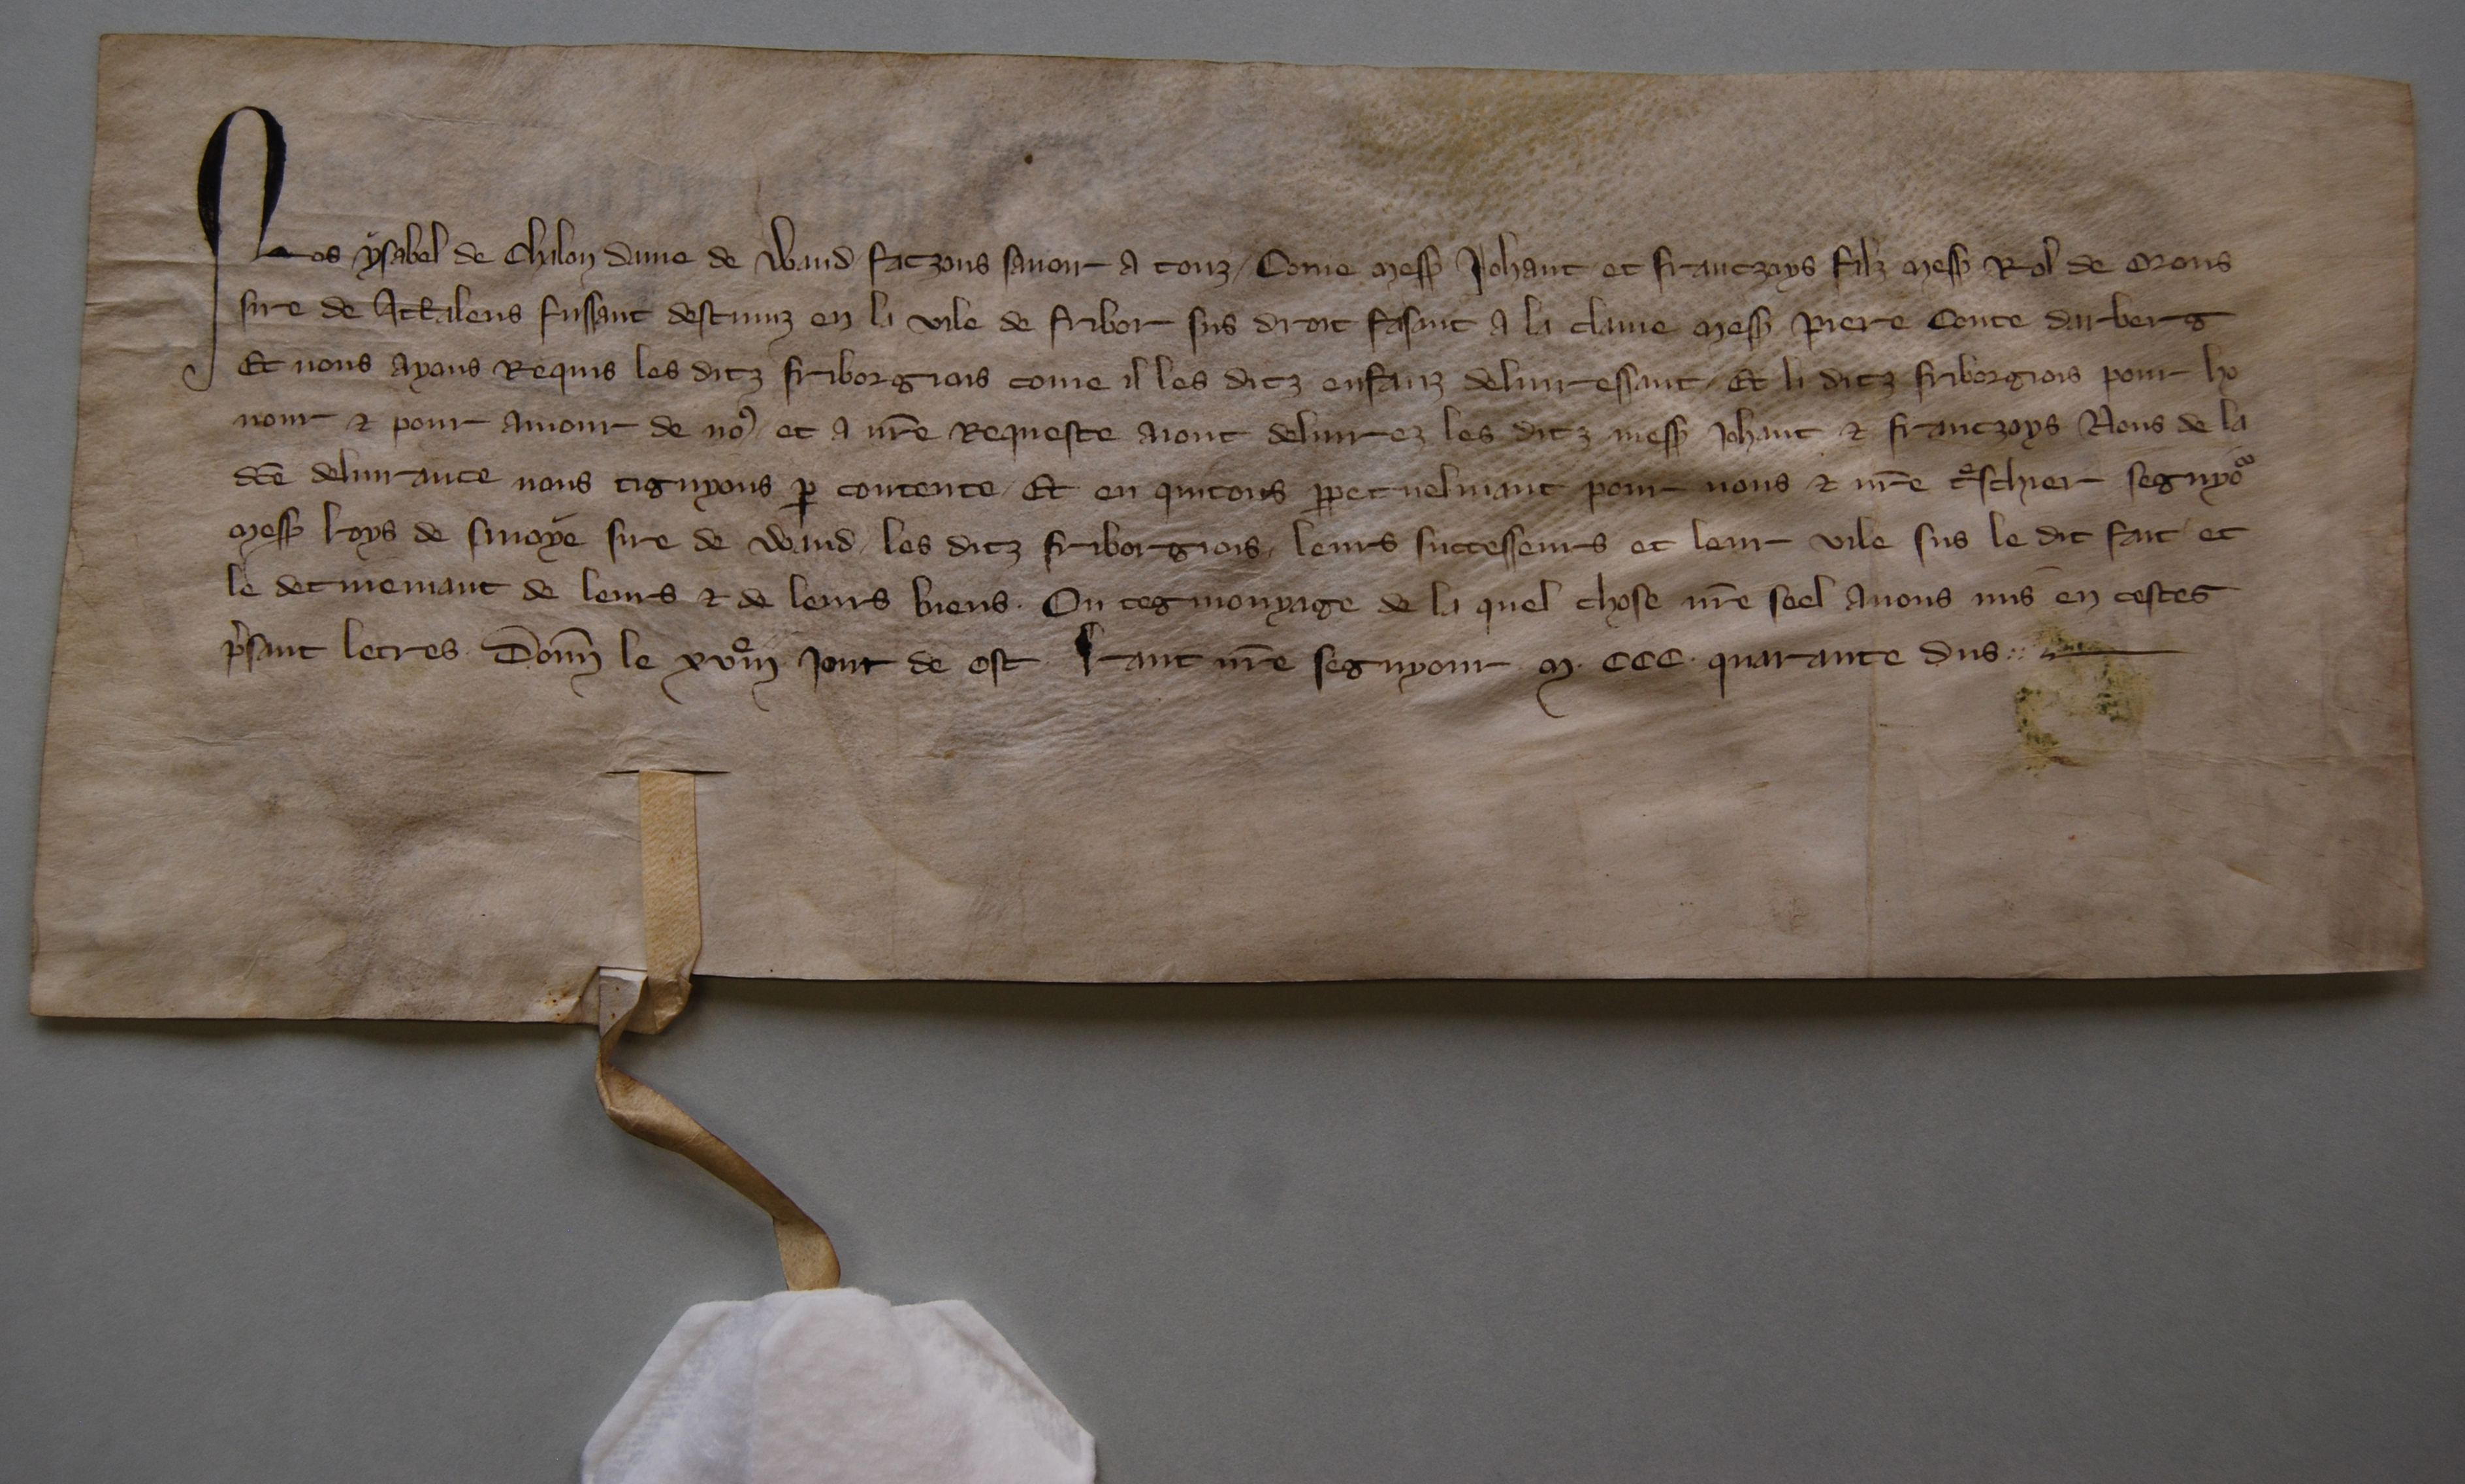 Nos ysabel de Chalon dame de Waud faczons savoir a touz / Come mess Johant et franczoys filz mess Rol de Orons
sire de Attalens fussant destenuz en la vile de fribor sus droit fasant a la clame mess piere Conte darberg
Et nous ayons Requis les ditz friborgiois come il les ditz enfanz delivressant / Et li ditz friborgiois pour ho
nour ⁊ pour amour de noꝰ et a nr̄e Requeste aiont delivrez les ditz mess Johant ⁊ franczoys Nous de la
dc̄e delivrance nous tignyons ꝑ contente / Et en quitons ꝑpetuelmant pour nous ⁊ nr̄e tͬschier segnyoͬ
mess loys de savoye sire de Waud / les ditz friborgiois / leurs successeurs et leur vile sus le dit fait et
le detinemant de leurs ⁊ de leurs biens . On tegmonyage de la quel chose nr̄e seel avons mis en cestes
p̄sant letres . Donn̄ le xvͦiij Jour de ost lant nr̄e segnyour M . CCC . quarante dus ::